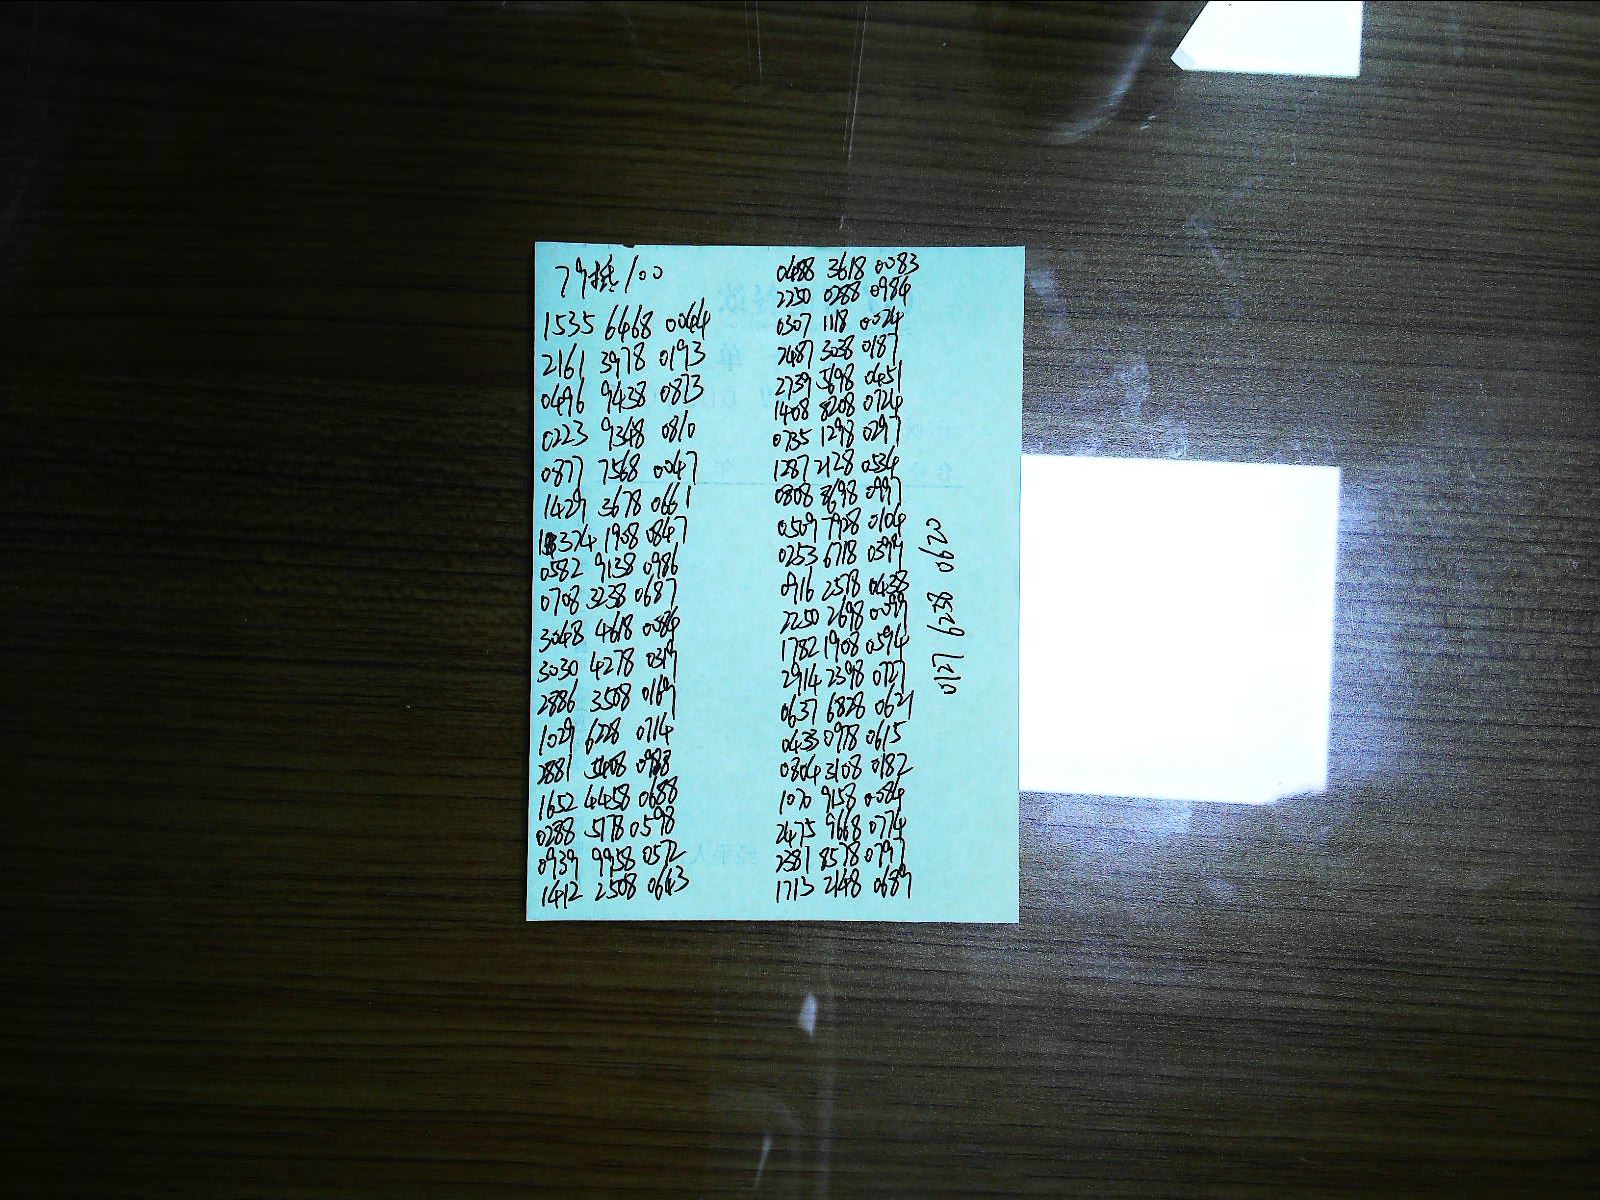 1535 6468 0044
2161 3978 0193
0496 9438 0873
0223 9348 0810
0877 7568 0047
1429 3678 0661
1374 1908 0847
0582 9138 0986
0708 3238 0687
3048 4618 0084
3030 4278 0319
2886 3508 0169
1029 6228 0714
2881 5408
1652 4458 0688
0288 5178 0598
0939 9958 0572
1412 2508 0643
0488 3618 0083
2250 0288 0984
0307 1118 0024
2487 3038 0187
2739 3698 0451
1408 8208 0724
0735 1298 0297
1287 2128 0534
0808 8698 0997
0509 7928 0104
0253 6718 0399
0916 2578 0438
2250 2698 0099
1782 1908 0594
2914 2398 0727
0637 6828 0621
0433 0978 0615
0804 3108 0182
1070 9158 0084
2475 9668 0774
2381 8578 0797
1713 2148 0689
0127 6258 0620